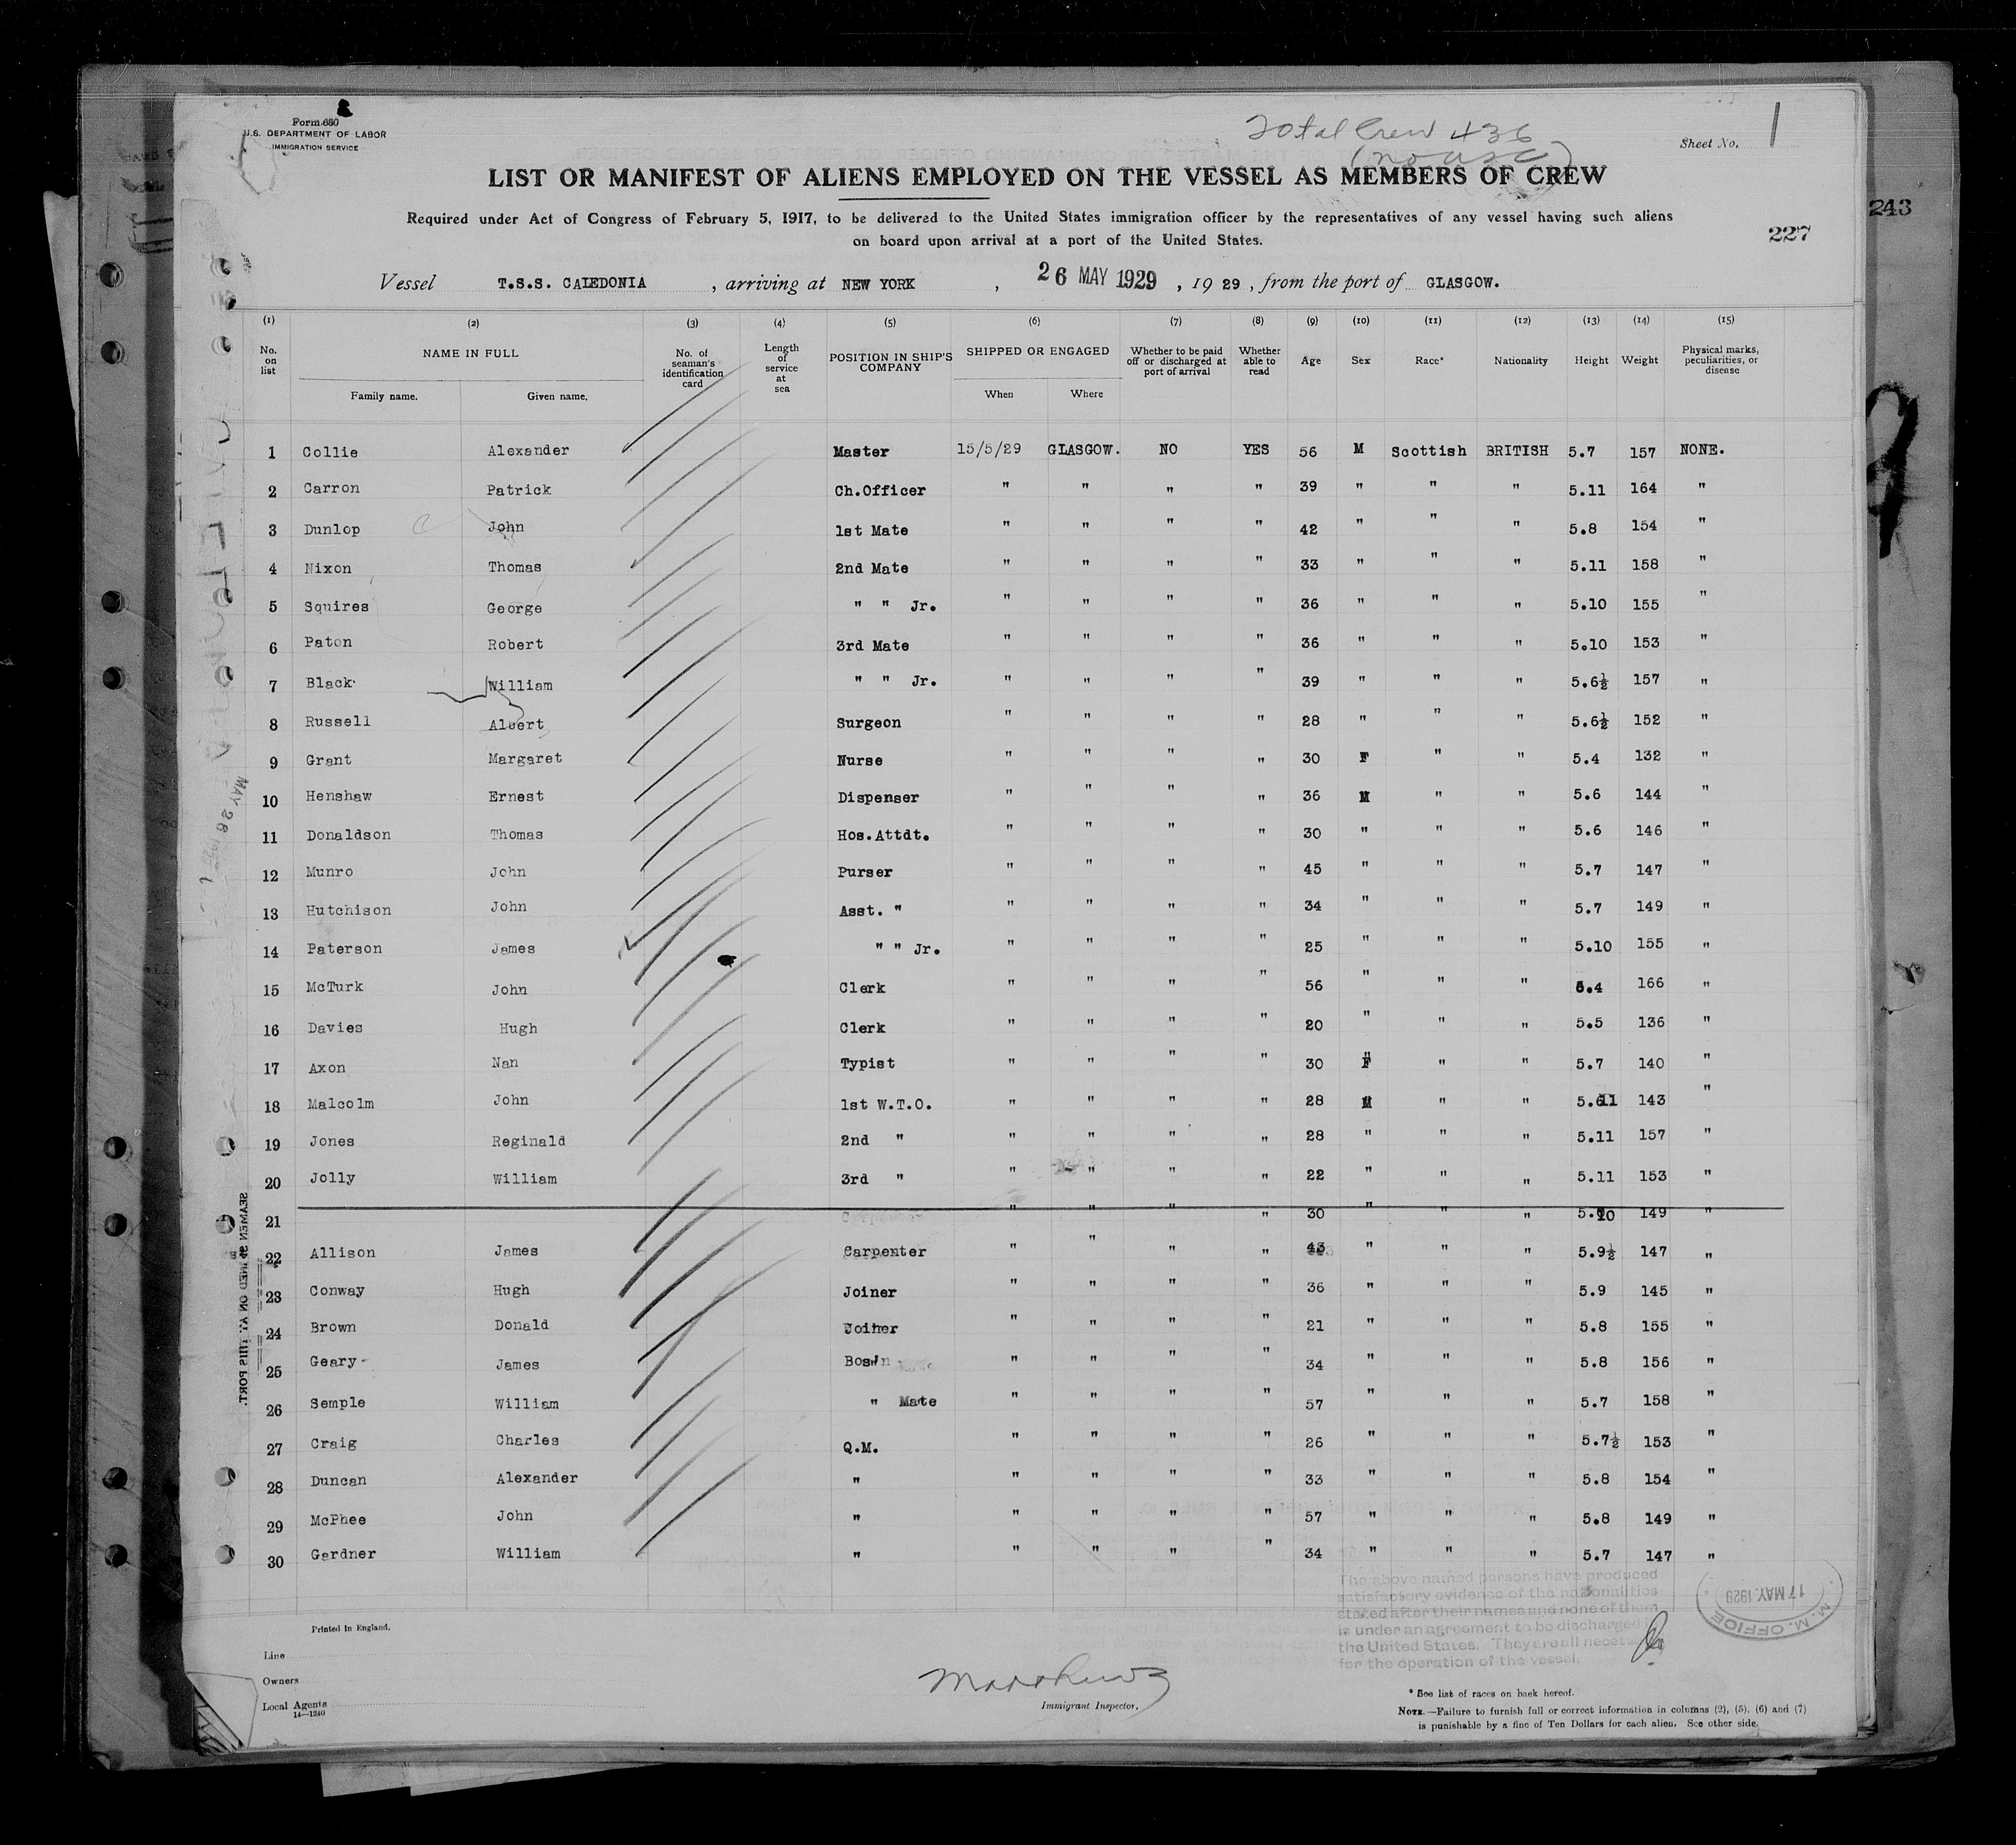 Form 680
U.S. DEPARTMENT OF LABOR
IMMIGRATION SERVICE
Total Crew 436
Sheet No. 1
LIST OR MANIFEST OF ALIENS EMPLOYED ON THE VESSEL AS MEMBERS OF CREW
Required under Act of Congress of February 5, 1917, to be delivered to the United States immigration officer by the representatives of any vessel having such aliens
on board upon arrival at a port of the United States.
243
227
Vessel T.S.S. CALEDONIA , arriving at NEW YORK , 26 MAY 1929 , 19 29 , from the port of GLASGOW.
(1) (2) (3) (4) (5) (6) (7) (8) (9) (10) (11) (12) (13) (14) (15)
No. on list NAME IN FULL Family name. Given name. No. of seaman's identification card Length of service at sea POSITION IN SHIP'S COMPANY SHIPPED OR ENGAGED When Where Whether to be paid off or discharged at port of arrival Whether able to read Age Sex Race* Nationality Height Weight Physical marks, peculiarities, or disease
1 Collie Alexander Master 15/5/29 GLASGOW. NO YES 56 M Scottish BRITISH 5.7 157 NONE.
2 Carron Patrick Ch.Officer " " " " 39 " " " 5.11 164 "
3 Dunlop John 1st Mate " " " " 42 " " " 5.8 154 "
4 Nixon Thomas 2nd Mate " " " " 33 " " " 5.11 158 "
5 Squires George " " Jr. " " " " 36 " " " 5.10 155 "
6 Paton Robert 3rd Mate " " " " 36 " " " 5.10 153 "
7 Black William " " Jr. " " " " 39 " " " 5.6½ 157 "
8 Russell Albert Surgeon " " " " 28 " " " 5.6½ 152 "
9 Grant Margaret Nurse " " " " 30 F " " 5.4 132 "
10 Henshaw Ernest Dispenser " " " " 36 M " " 5.6 144 "
11 Donaldson Thomas Hos.Attdt. " " " " 30 " " " 5.6 146 "
12 Munro John Purser " " " " 45 " " " 5.7 147 "
13 Hutchison John Asst. " " " " " 34 " " " 5.7 149 "
14 Paterson James " " Jr. " " " " 25 " " " 5.10 155 "
15 McTurk John Clerk " " " " 56 " " " 5.4 166 "
16 Davies Hugh Clerk " " " " 20 " " " 5.5 136 "
17 Axon Nan Typist " " " " 30 F " " 5.7 140 "
18 Malcolm John 1st W.T.O. " " " " 28 M " " 5.11 143 "
19 Jones Reginald 2nd " " " " " 28 " " " 5.11 157 "
20 Jolly William 3rd " " " " " 22 " " " 5.11 153 "
21 " " " " 30 " " " 5.10 149 "
22 Allison James Carpenter " " " " 43 " " " 5.9½ 147 "
23 Conway Hugh Joiner " " " " 36 " " " 5.9 145 "
24 Brown Donald Joiner " " " " 21 " " " 5.8 155 "
25 Geary James Bos'n " " " " 34 " " " 5.8 156 "
26 Semple William " Mate " " " " 57 " " " 5.7 158 "
27 Craig Charles Q.M. " " " " 26 " " " 5.7½ 153 "
28 Duncan Alexander " " " " " 33 " " " 5.8 154 "
29 McPhee John " " " " " 57 " " " 5.8 149 "
30 Gardner William " " " " " 34 " " " 5.7 147 "
The above named persons have produced
satisfactory evidence of the nationalities
stated after their names and none of them
is under an agreement to be discharged
the United States. They are all necessary
for the operation of the vessel.
M. M. OFFICE
17 MAY 1929
Printed in England.
Line
Owners
Local Agents
14—1240
Matthews
Immigrant Inspector.
* See list of races on back hereof.
NOTE.—Failure to furnish full or correct information in columns (2), (5), (6) and (7)
is punishable by a fine of Ten Dollars for each alien. See other side.